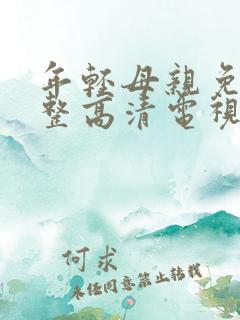 年輕母親免
整高清電視
何求
未经同意禁止转载